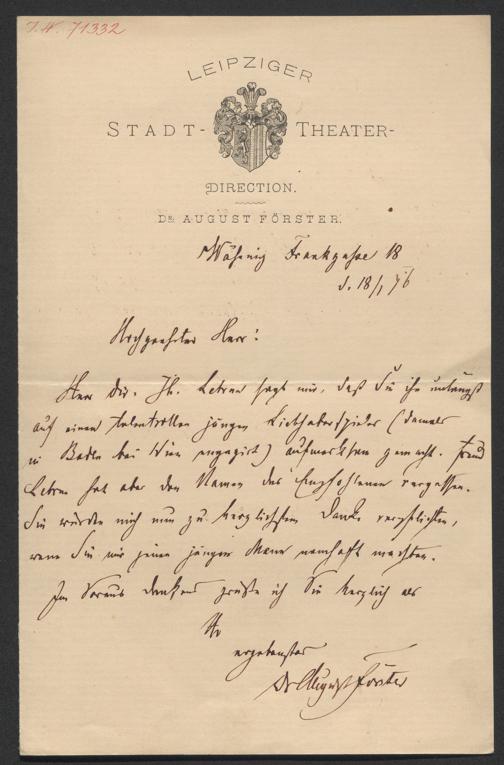 I.N. 71332
LEIPZIGER
STADT- THEATER-
DIRECTION.
DR. AUGUST FÖRSTER.
Währing Frankgasse 18
d. 18/1 76
Hochgeehrter Herr!
Herr Dir. Th. sagt mir, daß Sie ihn unlängst
auf einen talentvollen jungen Liebhaberspieler (damals
in Baden bei Wien engagirt) aufmerksam gemacht. Freund
hat aber den Namen des Empfohlenen vergessen.
Sie würden mich nun zu herzlichstem Danke verpflichten,
wenn Sie mir jenen jungen Mann namhaft machten.
Im Voraus dankend grüße ich Sie herzlich als
Ihr
ergebenster
Dr August Förster